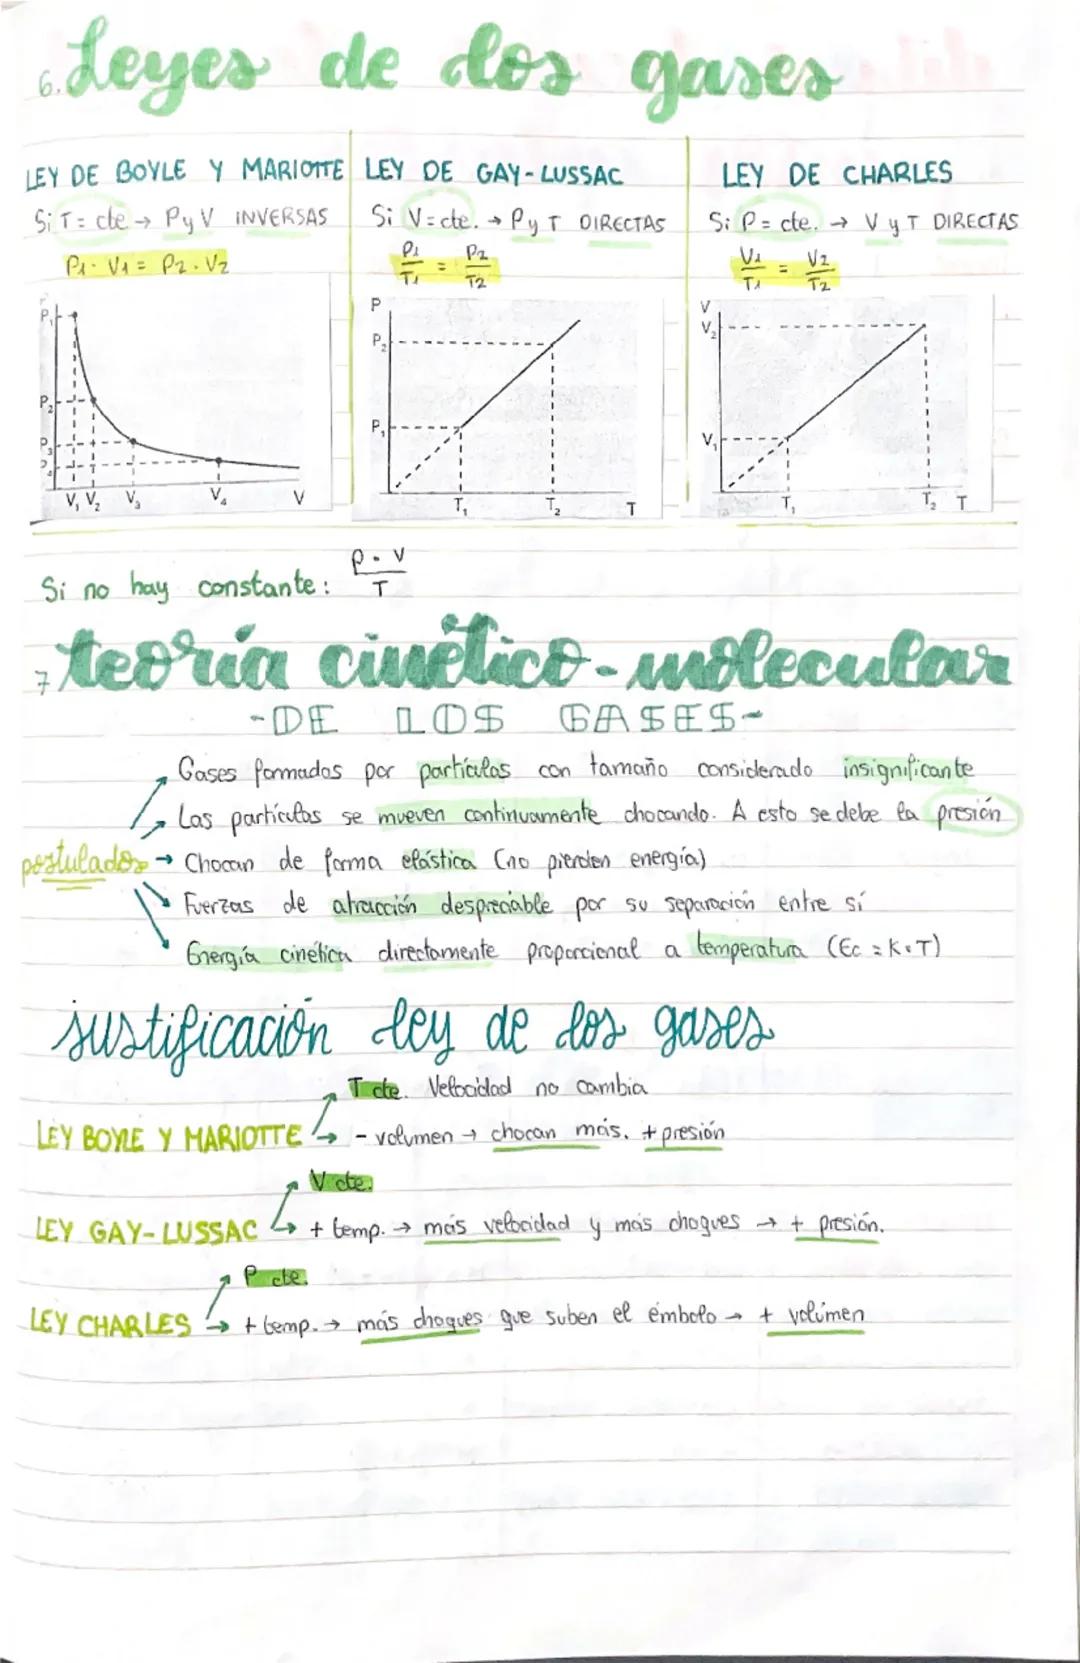 6. Leyes de los gases
LEY DE BOYLE Y MARIOTTE
Si T = cte → P y V INVERSAS
P1 · V1 = P2 . V2
P1
P2
P3
P4
V1 V2 V3 V4 V
LEY DE GAY-LUSSAC
Si V = cte. → P y T DIRECTAS
P1/T1 = P2/T2
P
P2
P1
T1 T2 T
LEY DE CHARLES
Si P = cte. → V y T DIRECTAS
V1/T1 = V2/T2
V
V2
V1
T1 T2 T
Si no hay constante: P · V / T
7 teoría cinético-molecular
-DE LOS GASES-
postulados
Gases formados por partículas con tamaño considerado insignificante
Las partículas se mueven continuamente chocando. A esto se debe la presión
→ Chocan de forma elástica (no pierden energía)
Fuerzas de atracción despreciable por su separación entre sí
Energía cinética directamente proporcional a temperatura (Ec = K·T)
justificación ley de los gases
T cte. Velocidad no cambia
LEY BOYLE Y MARIOTTE → - volumen → chocan más. + presión
V cte.
LEY GAY-LUSSAC → + temp. → más velocidad y más choques → + presión.
P cte.
LEY CHARLES → + temp. → más choques que suben el émbolo → + volúmen